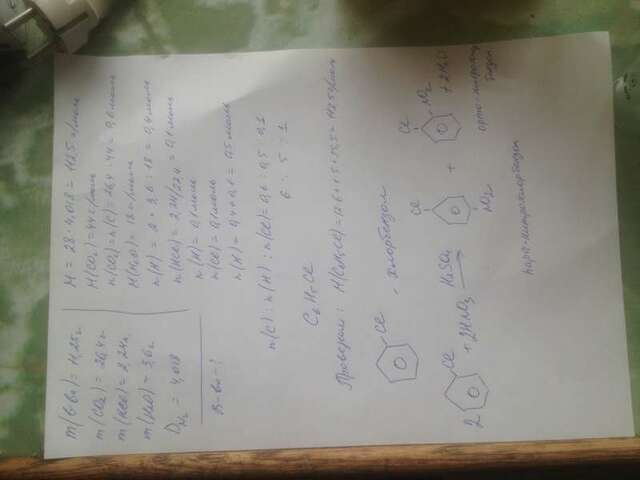 m(в-ва) = 11,25г
m(CO₂) = 26,4г
m(HCl) = 2,24л
m(H₂O) = 3,6г
D_N₂ = 4,018
В-во - ?
M = 28 · 4,018 = 112,5 г/моль
M(CO₂) = 44 г/моль
n(CO₂) = n(C) = 26,4 : 44 = 0,6 моль
M(H₂O) = 18 г/моль
n(H) = 2 · 3,6 : 18 = 0,4 моль
n(HCl) = 2,24/22,4 = 0,1 моль
n(H) = 0,1 моль
n(Cl) = 0,1 моль
n(H) = 0,4 + 0,1 = 0,5 моль
n(C) : n(H) : n(Cl) = 0,6 : 0,5 : 0,1
6 : 5 : 1
C₆H₅Cl
Проверим: M(C₆H₅Cl) = 12·6 + 1·5 + 35,5 = 112,5 г/моль
Cl
- хлорбензол
2 Cl + 2HNO₃ H₂SO₄ → Cl NO₂ + Cl NO₂ + 2H₂O
пара-нитрохлорбензол
орто-нитрохлор
бензол